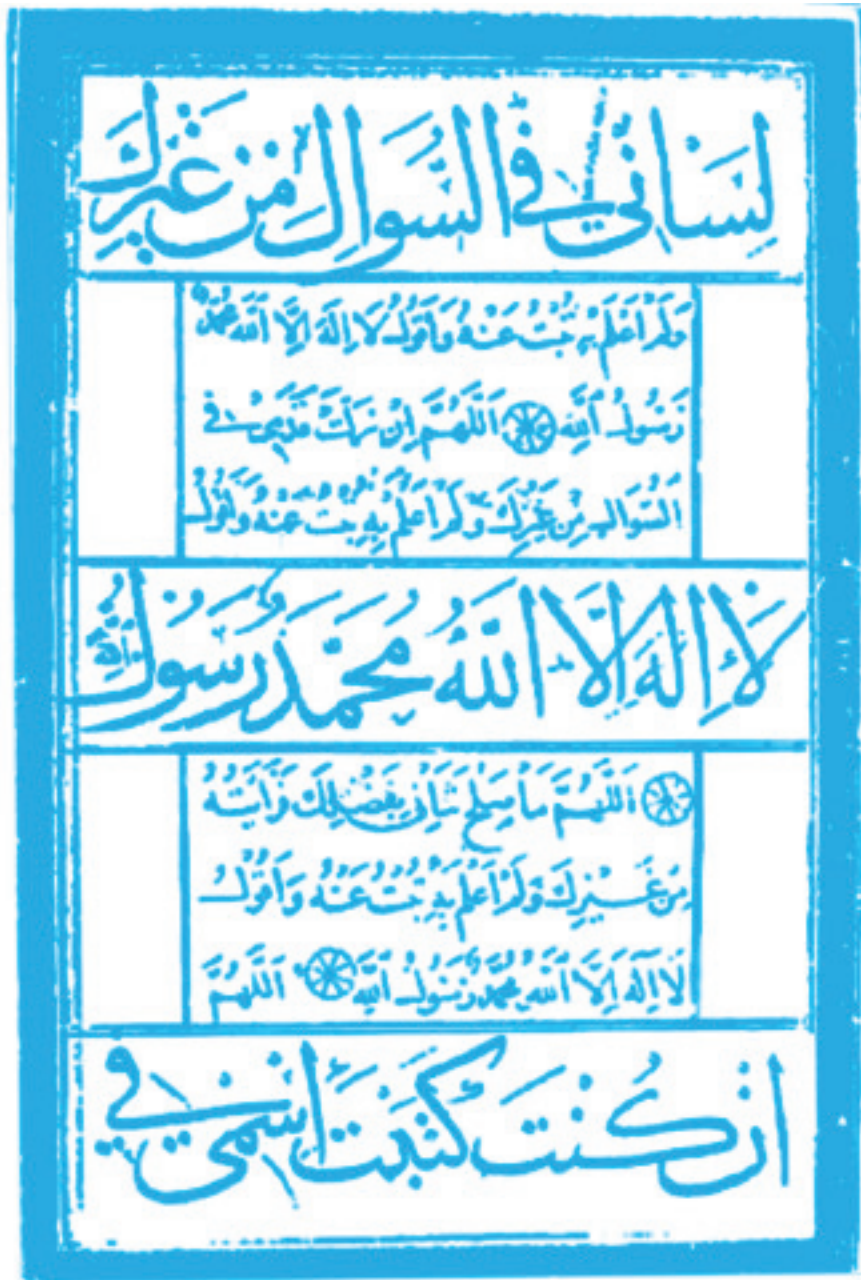 لِسَانِي فِي السُّوَالِ مِنْ غَيْرِكَ
وَلَمْ اَعْلَمْ بِهِ تُبْتُ عَنْهُ وَاَقُولُ لَا اِلَهَ اِلَّا اللَّهُ مُحَمَّدٌ
رَسُولُ اللَّهِ اَللَّهُمَّ اِنْ زَلَّتْ قَدَمِي فِي
السُّوَالِ مِنْ غَيْرِكَ وَلَمْ اَعْلَمْ بِهِ تُبْتُ عَنْهُ وَاَقُولُ
لَا اِلَهَ اِلَّا اللَّهُ مُحَمَّدٌ رَسُولُ اللَّهِ
اَللَّهُمَّ مَا صَلُحَ شَأْنِي بِفَضْلِكَ وَرَأَيْتُهُ
مِنْ غَيْرِكَ وَلَمْ اَعْلَمْ بِهِ تُبْتُ عَنْهُ وَاَقُولُ
لَا اِلَهَ اِلَّا اللَّهُ مُحَمَّدٌ رَسُولُ اللَّهِ اَللَّهُمَّ
اِنْ كُنْتَ كَتَبْتَ اِسْمِي فِي